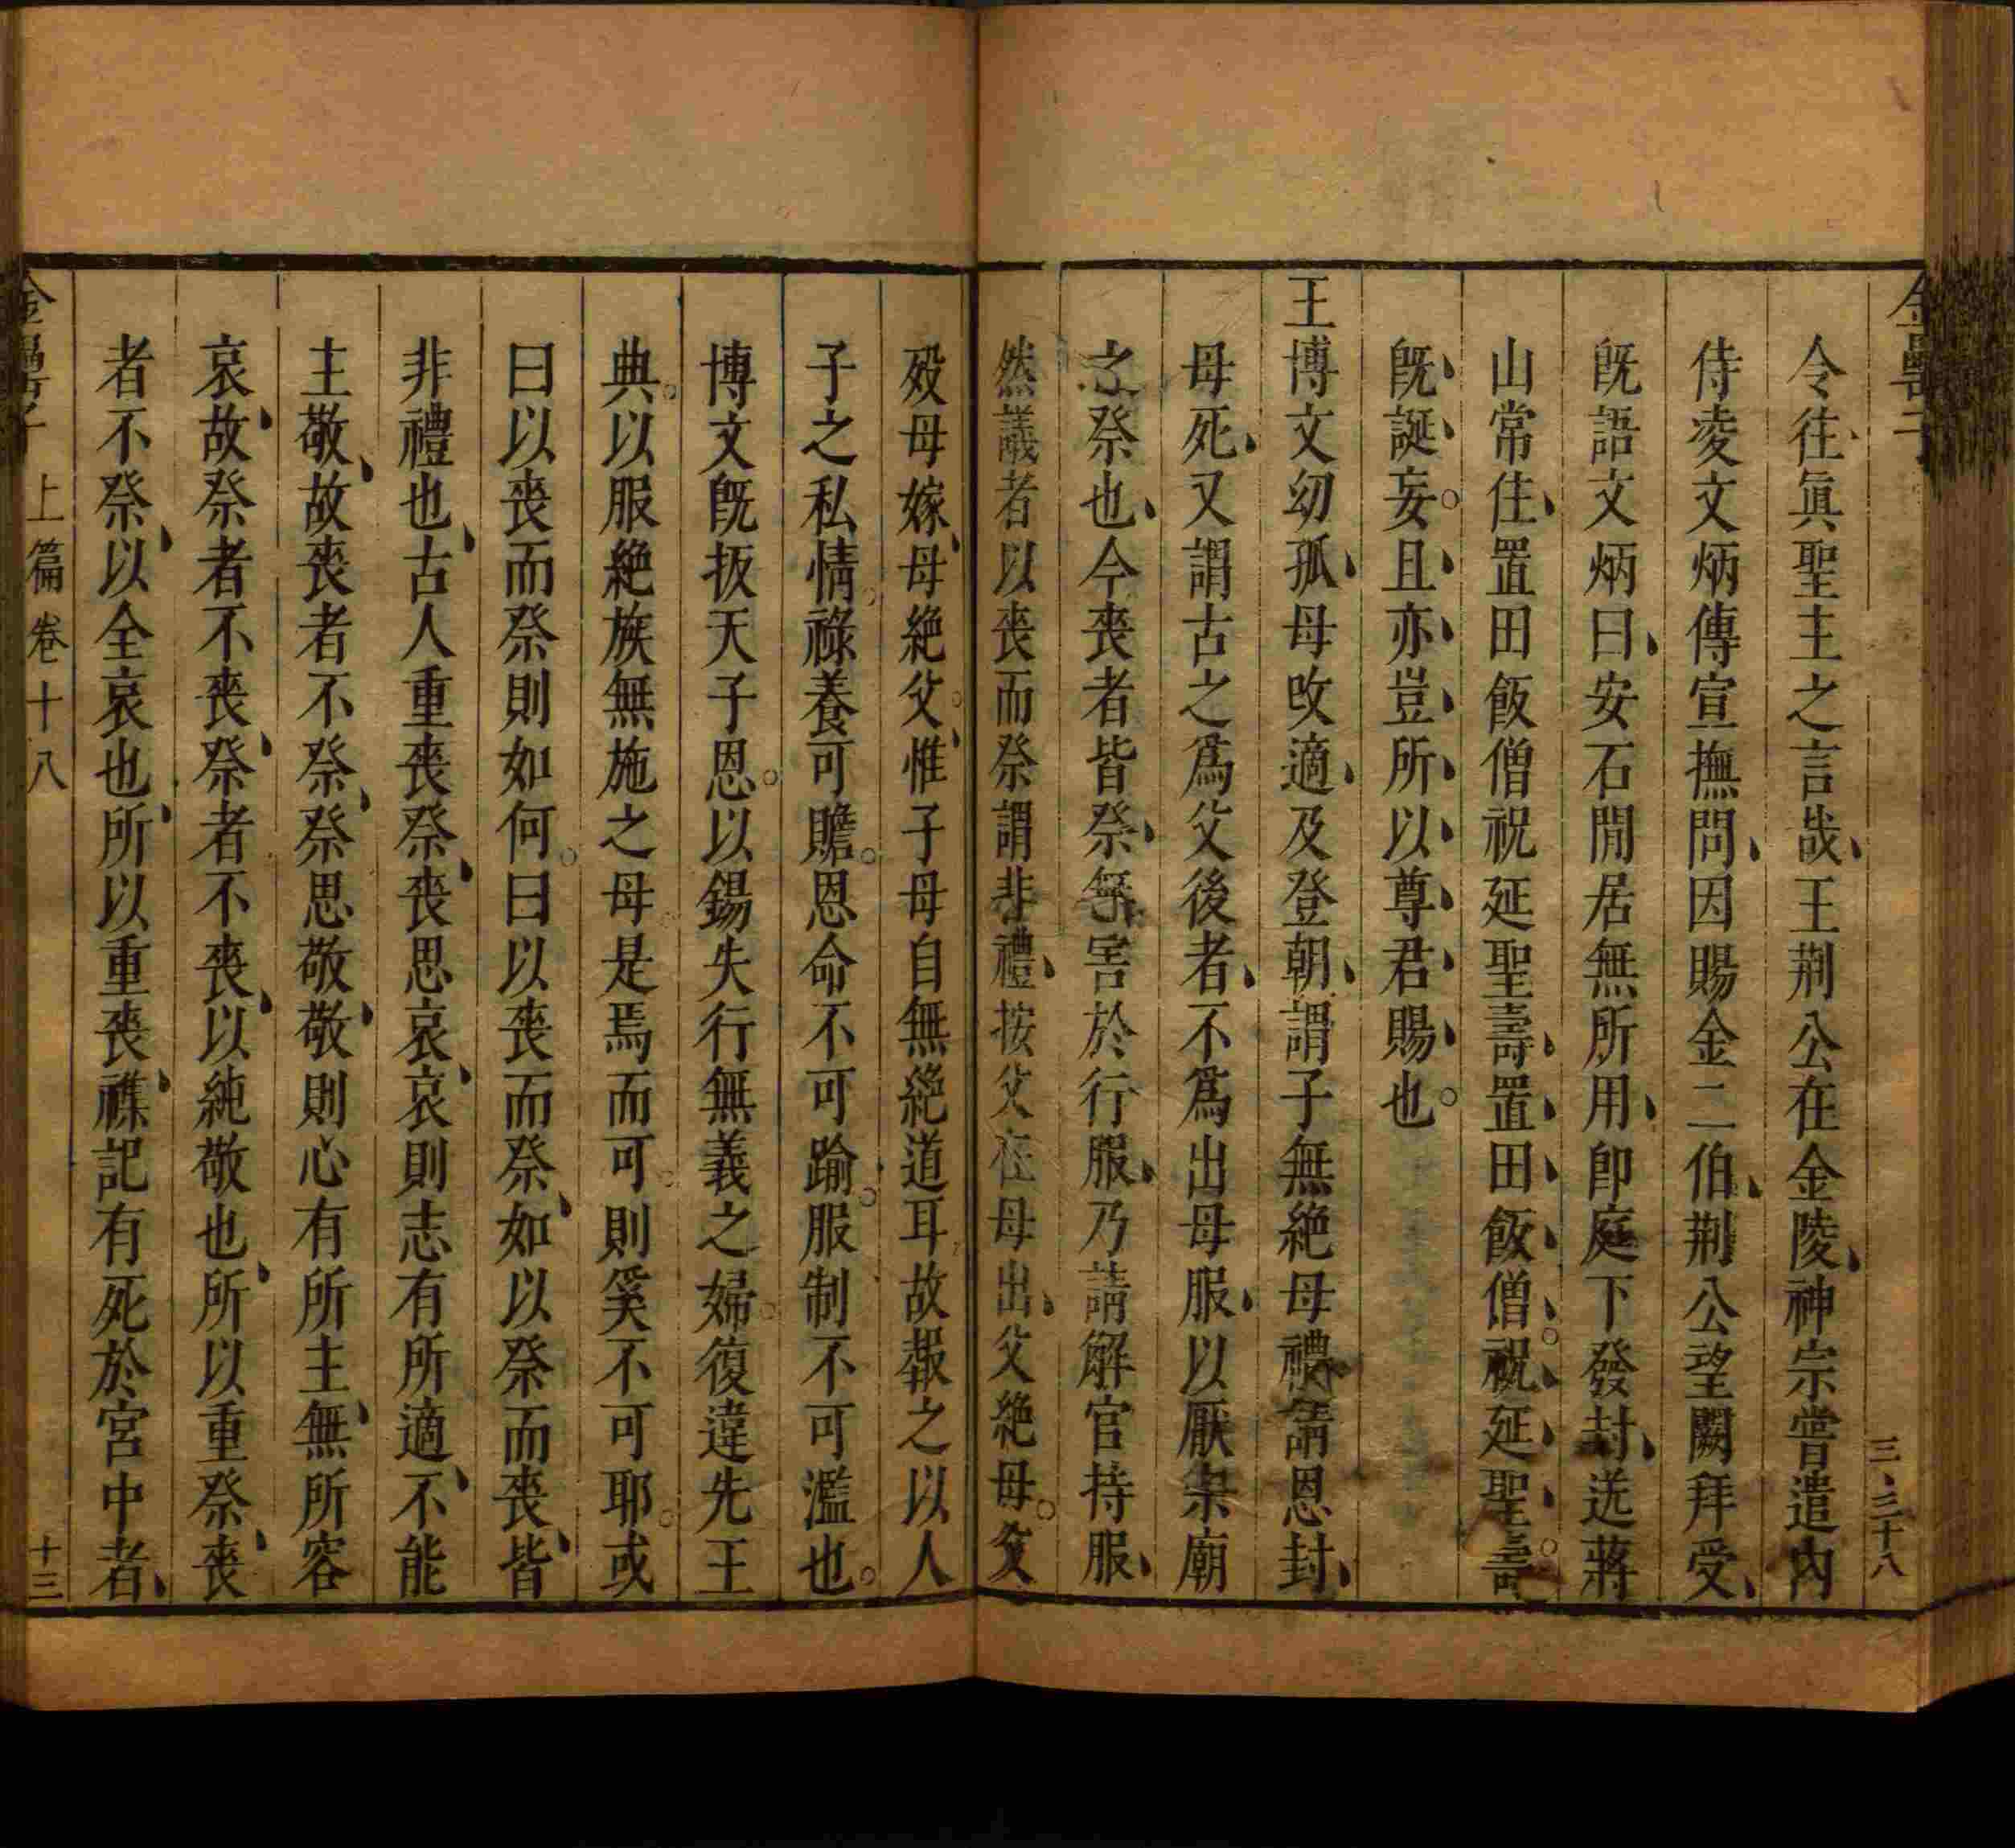 金罍子
三、三十八
令往眞聖主之言哉、王荆公在金陵、神宗嘗遣內
侍凌文炳傳宣撫問、因賜金二伯、荆公望闕拜受、
旣語文炳曰、安石閒居無所用、卽庭下發封、送蔣
山常住、置田飯僧祝延聖壽、置田飯僧、祝延聖壽
旣誕妄。且亦豈所以尊君賜也。
王博文幼孤、母攺適、及登朝、謂子無絶母禮、請恩封、
母死、又謂古之爲父後者、不爲出母服、以厭宗廟
之祭也、今喪者皆祭、無害於行服、乃請解官持服、
然議者以喪而祭謂非禮、按父在母出、父絶母。父
殁母嫁、母絶父、惟子母自無絶道耳故報之以人
子之私情。祿養可贍。恩命不可踰。服制不可濫也。
博文旣扳天子恩。以錫失行無義之婦。復違先王
典。以服絶族無施之母。是焉而可。則奚不可耶。或
曰以喪而祭則如何。曰以喪而祭、如以祭而喪、皆
非禮也、古人重喪祭、喪思哀、哀則志有所適、不能
主敬、故喪者不祭、祭思敬、敬則心有所主、無所容
哀、故祭者不喪、祭者不喪、以純敬也、所以重祭、喪
者不祭、以全哀也、所以重喪、襍記有死於宮中者、
金罍子 上篇卷十八 十三